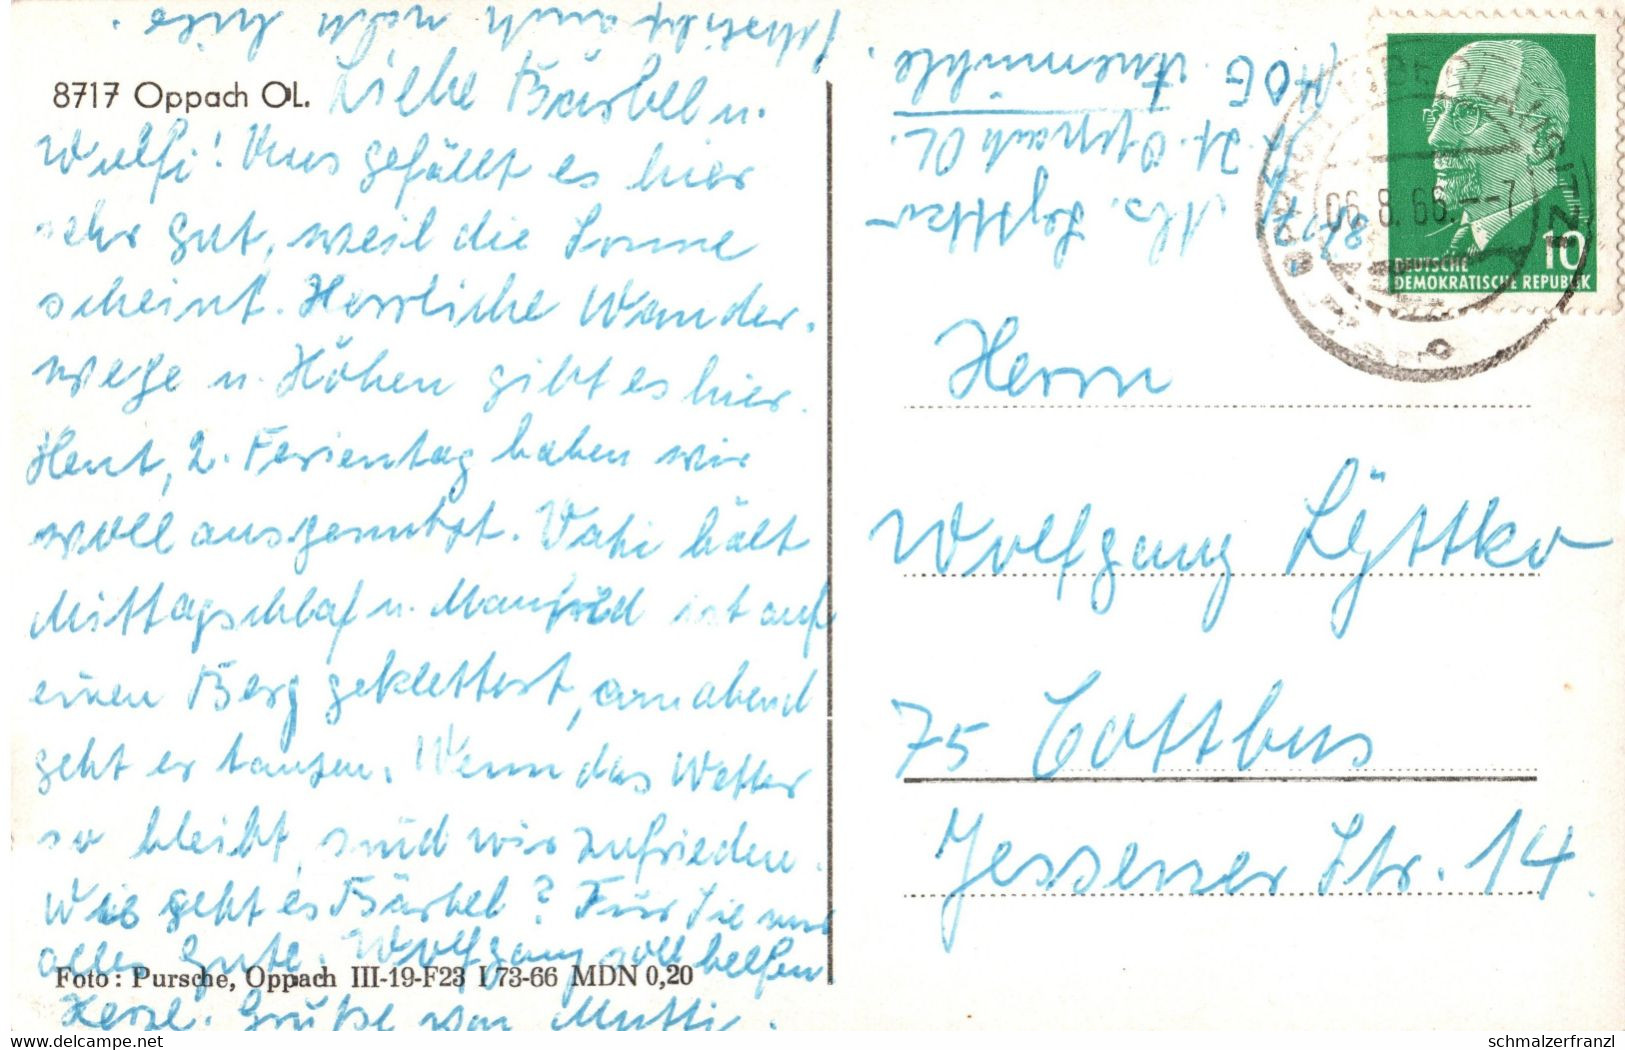 8717 Oppach OL.
Liebe Bärbel u.
Wolfi! Uns gefällt es hier
sehr gut, weil die Sonne
scheint. Herrliche Wander-
wege u. Höhen gibt es hier.
Heut, 2. Ferientag haben wir
voll ausgenutzt. Vati hält
Mittagschlaf u. Manfred ist auf
einen Berg geklettert, am abend
geht er tanzen. Wenn das Wetter
so bleibt, sind wir zufrieden.
Wie geht es Bärbel? Für Sie nur
alles Gute. Wolfgang soll helfen
Foto: Pursche, Oppach III-19-F23 I 73-66 MDN 0,20
Herzl. Grüße von Mutti.
schreibt auch noch
M. Lyttko
8717
z. Zt. Oppach OL.
HOG.
OBERLAUSITZ
06.8.66.--7
10
DEUTSCHE
DEMOKRATISCHE REPUBLIK
Herrn
Wolfgang Lyttko
75 Cottbus
Jessener Str. 14
www.delcampe.net
schmalzerfranzl